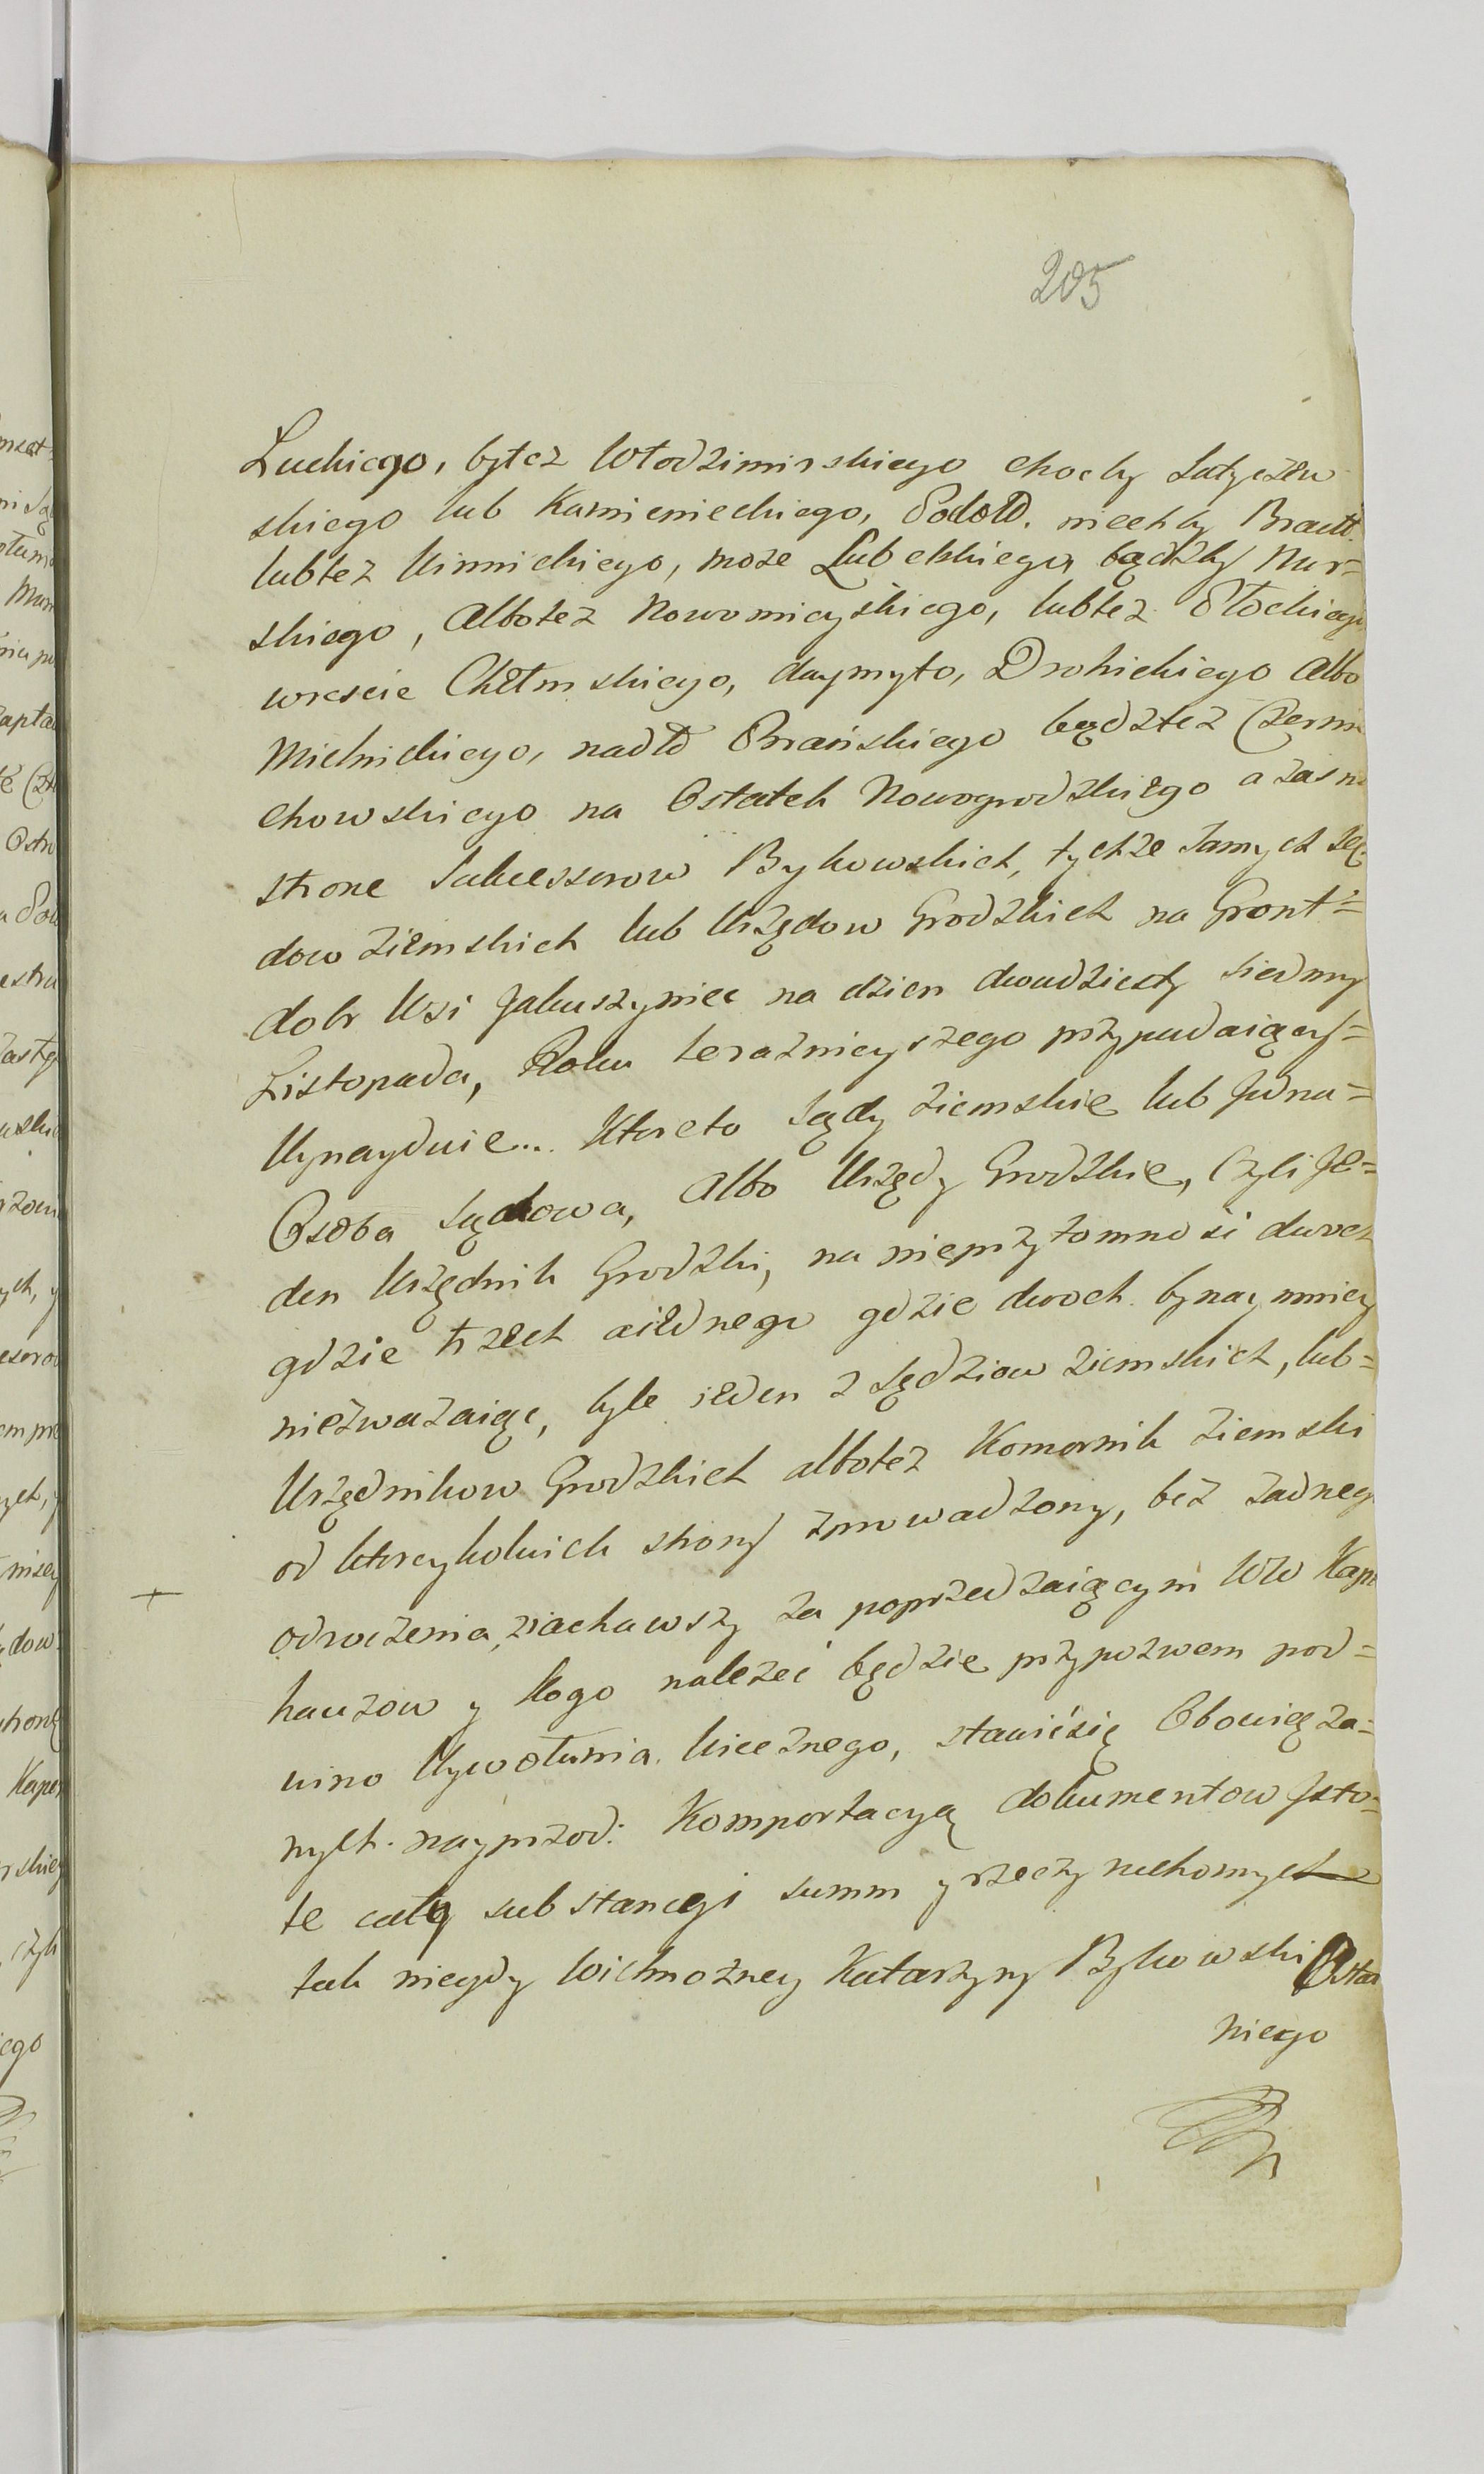 205
Luckiego, bytez Włodzimirskiego choćby Latyczew
skiego lub Kamienieckiego, Podol. niechby Bracł.
lubtez Winnickiego, może Lubelskiego, bądzby Nur=
skiego, Albotez Nowomieyskiego, lubtez Płockiego
wreście Chełmskiego, daymyto, Drohickiego albo
Mielnickiego, nadto Brańskiego bądztez Czerni
chowskiego na Ostatek Nowogrodzkiego a zas na
strone Sukcessorow Bykowskich, tychze samych Sę
dow Ziemskich lub Urzędow Grodzkich na Gront=
dobr Wsi Jakuszyniec na dzien dwudziesty siedmy
Listopada, Roku teraznieyszego przypadaiący=
Wynayduie... Ktoreto Sądy Ziemskie lub Jedna=
Osoba Sądowa, Albo Urzędy Grodzkie, Czyli Je=
den Urzędnik Grodzki, na nieprzytomność dwoch
gdzie trzech aiednego gdzie dwoch bynaymniey
niezwazaiąc, byle ieden z Sędziow Ziemskich, lub=
Urzędnikow Grodzkich albotez Komornik Ziemski
od ktoreykolwiek strony zprowadzony, bez zadnego
odroczenia, ziachawszy za poprzedzaiącym WW Kape
hauzow y Kogo należeć będzie przypozwem pod=
wino Wywołania Wiecznego, stawićsię Obowiąza=
nych. nayprzod: Komportacyą dokumentow Isto=
te cały substancyi summ y rzeczy ruchomych
tak niegdy Wielmozney Katarzyny Bykowski Ostat
niego